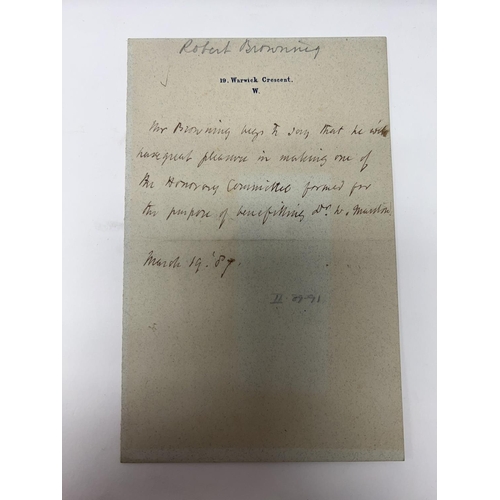 Robert Browning
19, Warwick Crescent,
W.
Mr Browning begs to say that he will
have great pleasure in making one of
the Honorary Committee formed for
the purpose of benefitting Dr. W. Marston.
March 19. '87.